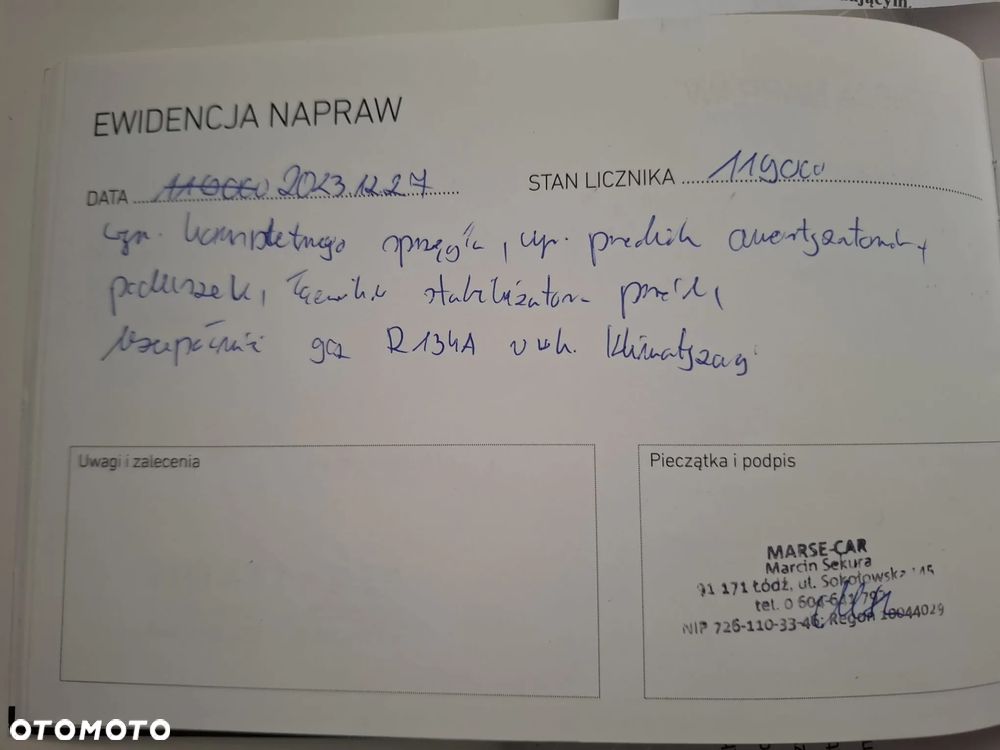 ającym
EWIDENCJA NAPRAW
DATA 119000 2023.12.27 STAN LICZNIKA 119000
kompletnego sprzęgła, wym. przednich amortyzatorów +
poduszek, łączniki stabilizatora
gaz R134A klimatyzacji
Uwagi i zalecenia
Pieczątka i podpis
MARSE-CAR
Marcin Sekura
91 171 Łódź, ul. Sokołowska
tel. 0 604-6
NIP 726-110-33-46, Regon 10044029
OTOMOTO